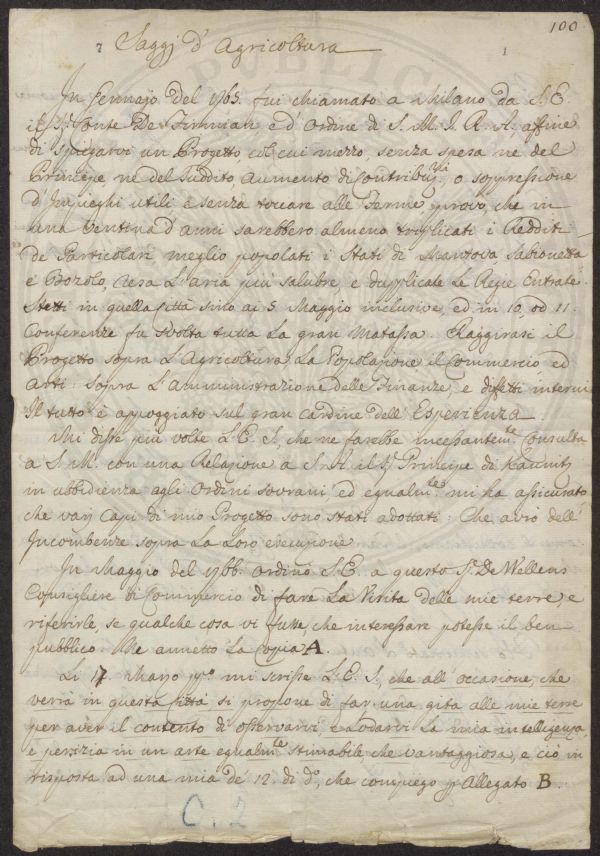 100
7 Saggj d'Agricoltura 1
In Gennajo del 1765. fui chiamato a Milano da S. E.
il Sr. Conte De Firmian ed'Ordine di S. M. I. R. A. affine
di spiegarvi un Progetto col cui mezzo, senza spesa ne del
Principe, ne del suddito, aumento di Contribuzni, o soppressione
d'Impieghi utili e senza toccare alle Ferme, provo, che in
una ventina d'anni sarebbero almeno triplicati i Redditi
de Particolari meglio popolati i Stati di Mantova Sabionetta
e Bozolo, resa L'aria più salubre, e duplicate Le Regie Entrate.
Stetti in quella Città sino ai 5 Maggio inclusive, ed in 10, od 11.
Conferenze fu svolta tutta La gran Matassa. Raggirasi il
Progetto sopra L'Agricoltura La Popolazione il Commercio ed
Arti: sopra L'Amministrazione delle Finanze, e difetti interni
Il tutto è appoggiato sul gran cardine dell'Esperienza.
Mi disse più volte S. E. S, che ne farebbe incessantemte. Consulta
a S. M. con una Relazione a S. A. il Sr. Principe di Kaunitz
in ubbidienza agli Ordini sovrani ed egualmte. mi ha assicurato
che varj Capi di mio Progetto sono stati adottati: Che avrò dell'
Incombenze sopra La Loro esecuzione
In Maggio del 1766. ordinò S. E. a questo Sr. De Wellens
Consigliere di Commercio di fare La Visita delle mie terre, e
riferirle, se qualche cosa vi fosse, che interessare potesse il ben
pubblico. Me annetto La Copia A.
Li 17 Marzo mi scrisse S. E. S, che all'occasione, che
verrà in questa Città si propone di far una gita alle mie terre
per aver il contento di osservarvi e lodarvi La mia intelligenza,
e perizia in un arte egualmte. stimabile che vantaggiosa, e ciò in
risposta ad una mia de' 12. di do., che compiego pr Allegato B.
C. 2